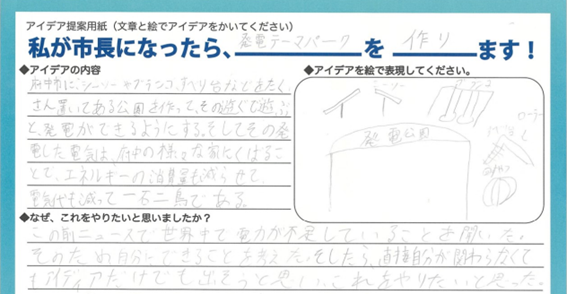 アイデア提案用紙（文章と絵でアイデアをかいてください）
私が市長になったら、発電テーマパークを作ります！
◆アイデアの内容
府中市に、シーソーやブランコ、すべり台などをたく
さん置いてある公園を作って、その遊具で遊ぶ
と、発電ができるようにする。そしてその発
電した電気は、府中の様々な家にくばるこ
とで、エネルギーの消費量も減らせて、
電気代も減って一石二鳥である。
◆アイデアを絵で表現してください。
シーソー
発電公園
◆なぜ、これをやりたいと思いましたか？
この前ニュースで世界中で電力が不足していることを聞いた。
そのため自分にできることを考えた。そしたら、直接自分が関わらなくて
もアイディアだけでも出そうと思い、これをやりたいと思った。